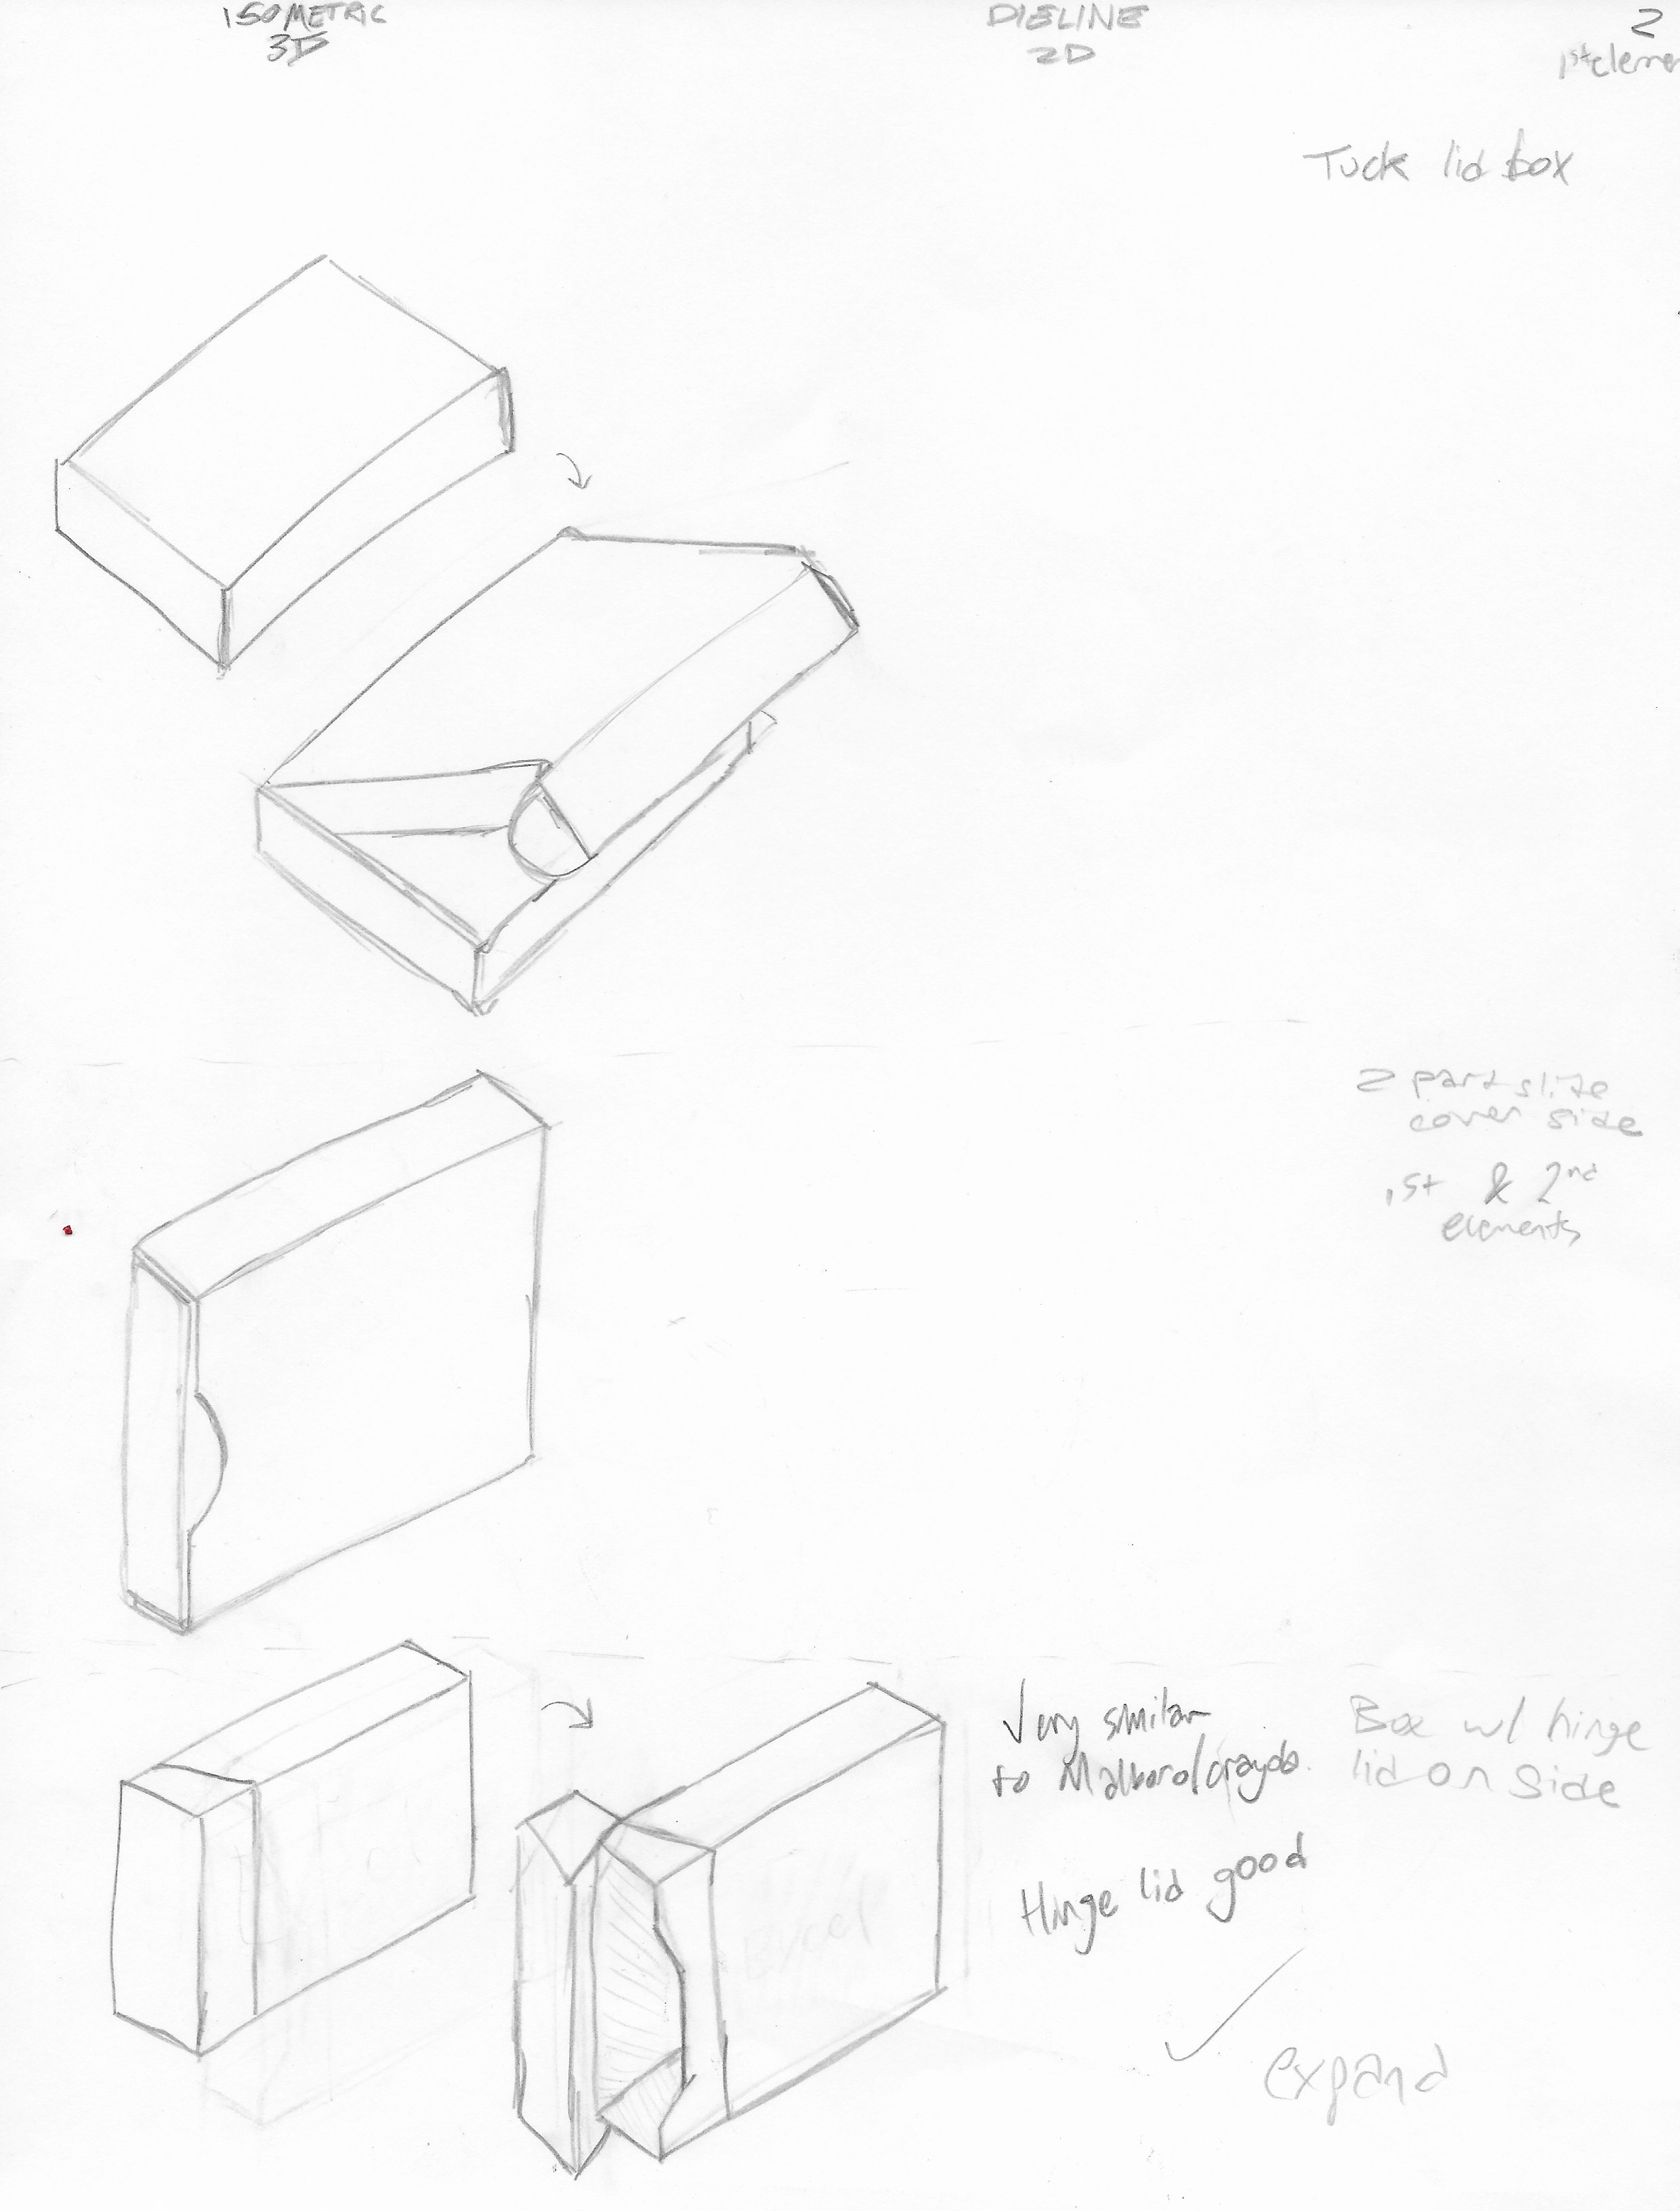 ISOMETRIC
3D
DIELINE
2D
2
1st elemen
Tuck lid box
2 part slide
cover side
1st & 2nd
elements
Very similar
to Malboro/crayola.
Box w/ hinge
lid on side
Hinge lid good
expand